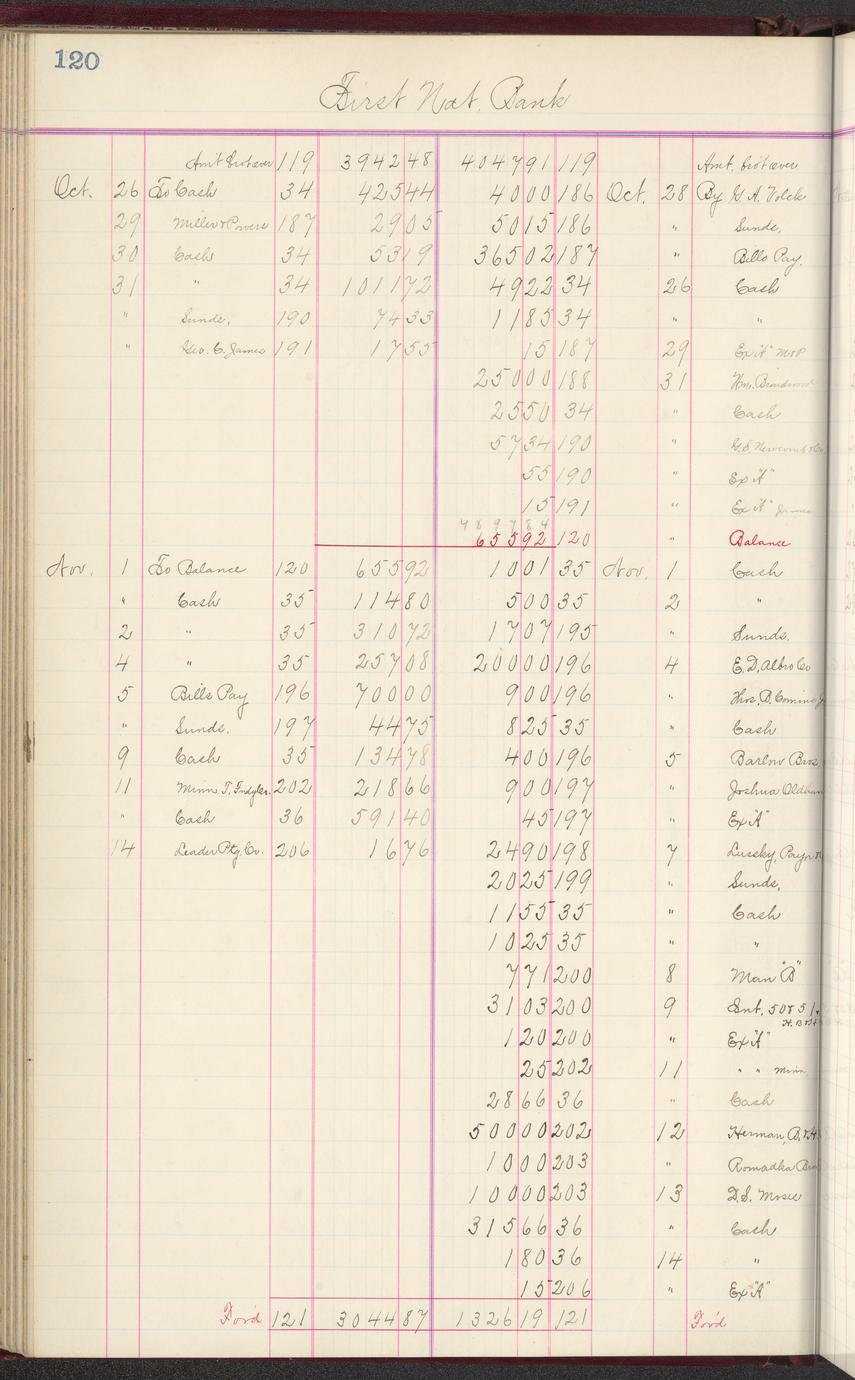 120
First Nat. Bank
Am't brot over 119 3942 48 4047 91 119 Amt. brot over
Oct. 26 To Cash 34 425 44 40 00 186 Oct. 28 By G. A. Volck
29 Miller & Powers 187 29 05 50 15 186 " Sunds.
30 Cash 34 53 19 365 02 187 " Bills Pay.
31 " 34 1011 72 49 22 34 26 Cash
" Sunds, 190 74 33 11 85 34 " "
" Geo. C. James 191 17 55 15 187 29 Ex "A" M & P
250 00 188 31 Wm.
25 50 34 " Cash
57 34 190 " G. S. Newcomb & Co
55 190 " Ex "A"
15 191 " Ex "A" James
4897 84
655 92 120 " Balance
Nov. 1 To Balance 120 655 92 10 01 35 Nov. 1 Cash
" Cash 35 114 80 5 00 35 2 "
2 " 35 310 72 17 07 195 " Sunds.
4 " 35 257 08 200 00 196 4 E. D. Albro Co
5 Bills Pay 196 700 00 9 00 196 "
" Sunds. 197 44 75 8 25 35 " Cash
9 Cash 35 134 78 4 00 196 5 Barlow Bros
11 Minn T. Indylen. 202 218 66 9 00 197 " Joshua Oldham
" Cash 36 591 40 45 197 " Ex "A"
14 Leader Ptg. Co. 206 16 76 24 90 198 7 Lussky, Payn
20 25 199 " Sunds,
11 55 35 " Cash
10 25 35 " "
7 71 200 8 Man "B"
31 03 200 9 Int, 50 & 51
H. B & H
1 20 200 " Ex "A"
25 202 11 " " Minn
28 66 36 " Cash
500 00 202 12 Herman, B. & H.
10 00 203 " Romadka Bro
100 00 203 13 D. S. Moses
315 66 36 " Cash
1 80 36 14 "
15 206 " Ex "A"
For'd 121 3044 87 1326 19 121 For'd